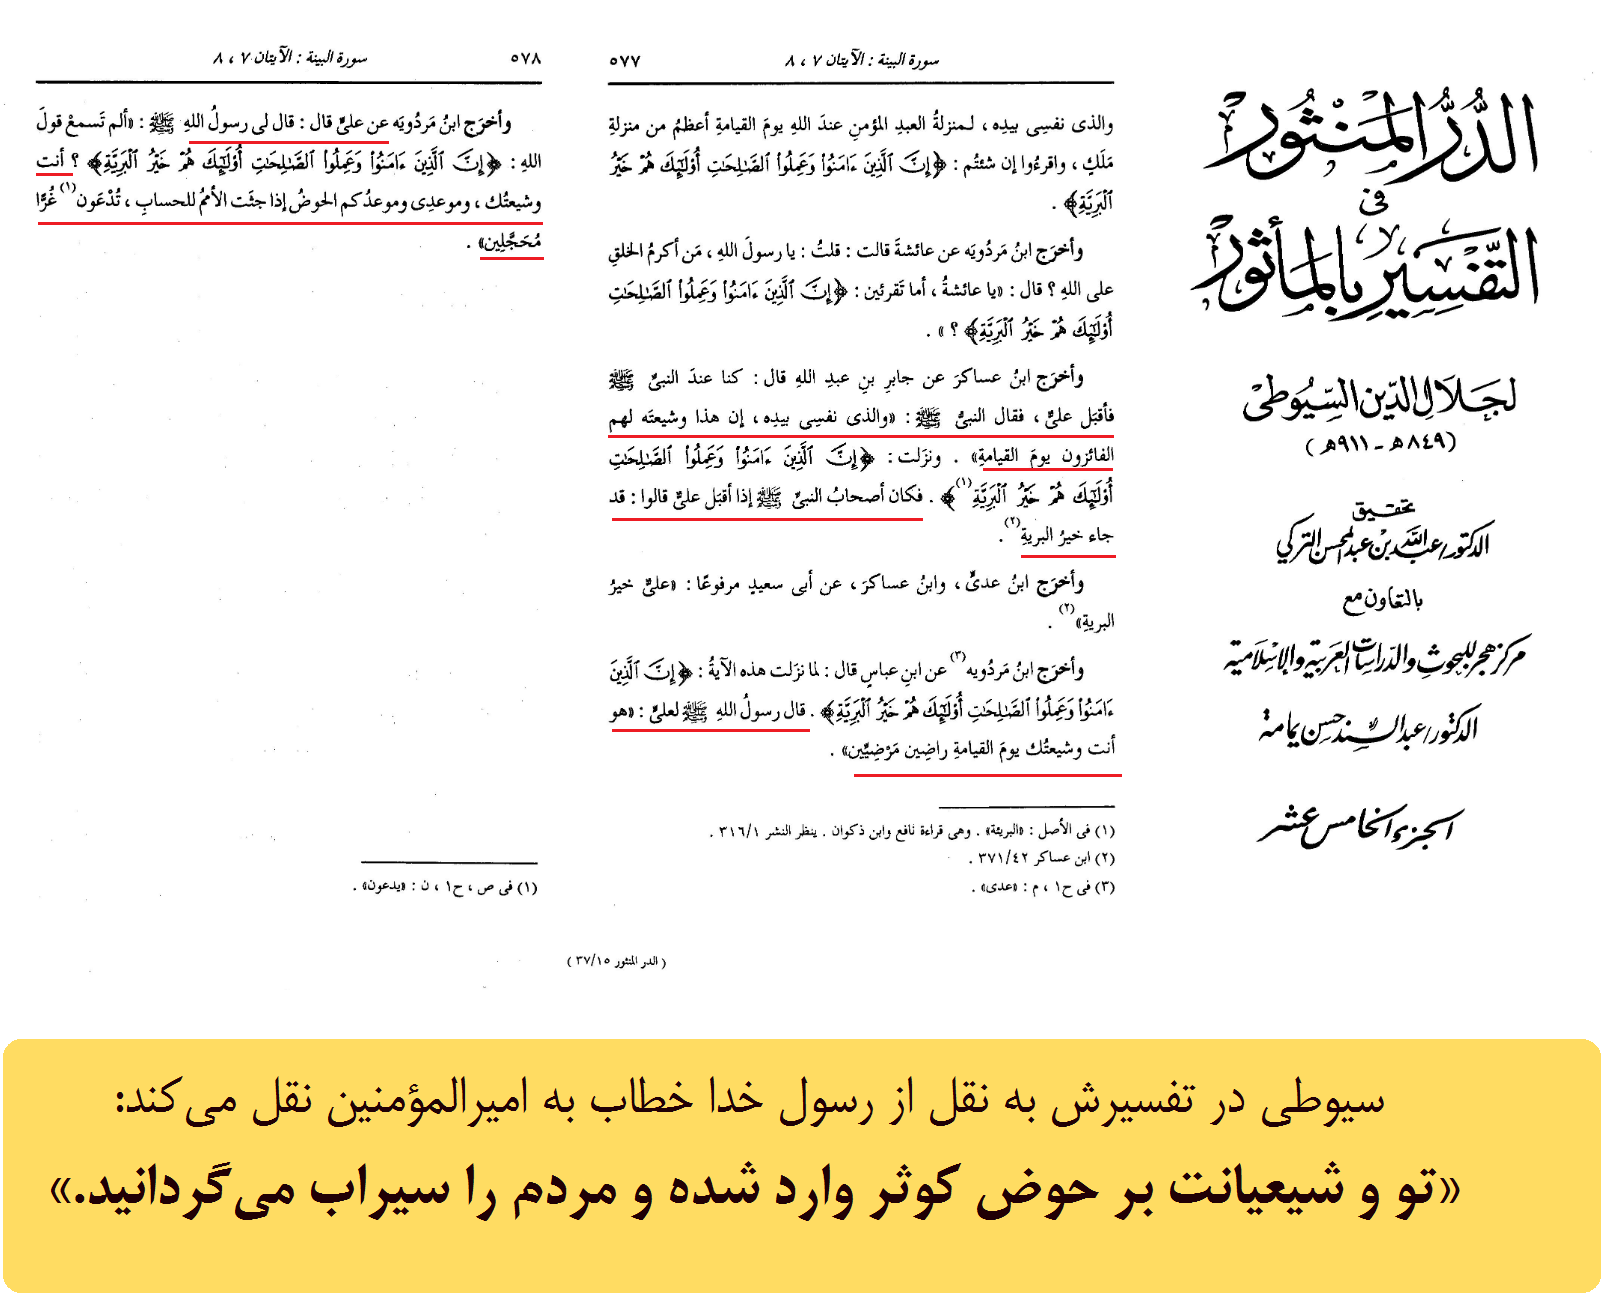 الدُّرُّ المَنْثُور
فى
التَّفْسِيرِ بالمأثُور
لجَلَالِ الدِّين السِّيُوطِىْ
(٨٤٩هـ - ٩١١هـ)
تحقيق
الدكتور/عبد الله بن عبد المحسن التركي
بالتعاون مع
مركز هجر للبحوث والدراسات العربية والإسلامية
الدكتور/عبد السند حسن يمامة
الجزء الخامس عشر
سورة البينة : الآيتان ٧ ، ٨
٥٧٧
والذى نفسِى بيدِه ، لـمنزلةُ العبدِ المؤمنِ عندَ اللهِ يومَ القيامةِ أعظمُ من منزلةِ
مَلَكٍ ، واقرءُوا إن شئتُم : ﴿إِنَّ ٱلَّذِينَ ءَامَنُوا۟ وَعَمِلُوا۟ ٱلصَّـٰلِحَـٰتِ أُو۟لَـٰٓئِكَ هُمْ خَيْرُ
ٱلْبَرِيَّةِ﴾ .
وأخرَج ابنُ مَردُويَه عن عائشةَ قالت : قلتُ : يا رسولَ اللهِ ، مَن أكرمُ الخلقِ
على اللهِ ؟ قال : «يا عائشةُ ، أما تَقرئين : ﴿إِنَّ ٱلَّذِينَ ءَامَنُوا۟ وَعَمِلُوا۟ ٱلصَّـٰلِحَـٰتِ
أُو۟لَـٰٓئِكَ هُمْ خَيْرُ ٱلْبَرِيَّةِ﴾ ؟ » .
وأخرَج ابنُ عساكرَ عن جابرِ بنِ عبدِ اللهِ قال : كنا عندَ النبىِّ ﷺ
فأقبَل علىٌّ ، فقال النبىُّ ﷺ : «والذى نفسِى بيدِه ، إن هذا وشيعتَه لهم
الفائزون يومَ القيامةِ» . ونزَلت : ﴿إِنَّ ٱلَّذِينَ ءَامَنُوا۟ وَعَمِلُوا۟ ٱلصَّـٰلِحَـٰتِ
أُو۟لَـٰٓئِكَ هُمْ خَيْرُ ٱلْبَرِيَّةِ(١)﴾ . فكان أصحابُ النبىِّ ﷺ إذا أقبَل علىٌّ قالوا : قد
جاء خيرُ البريةِ(٢) .
وأخرَج ابنُ عدىٍّ ، وابنُ عساكرَ ، عن أبى سعيدٍ مرفوعًا : «علىٌّ خيرُ
البريةِ»(٢) .
وأخرَج ابنُ مَردُويه(٣) عن ابنِ عباسٍ قال : لما نزَلت هذه الآيةُ : ﴿إِنَّ ٱلَّذِينَ
ءَامَنُوا۟ وَعَمِلُوا۟ ٱلصَّـٰلِحَـٰتِ أُو۟لَـٰٓئِكَ هُمْ خَيْرُ ٱلْبَرِيَّةِ﴾ . قال رسولُ اللهِ ﷺ لعلىٍّ : «هو
أنت وشيعتُك يومَ القيامةِ راضِين مَرْضِيِّين» .
(١) فى الأصل : «البريئة» . وهى قراءة نافع وابن ذكوان . ينظر النشر ٣١٦/١ .
(٢) ابن عساكر ٣٧١/٤٢ .
(٣) فى ح١ ، م : «عدى» .
( الدر المنثور ٣٧/١٥ )
سورة البينة : الآيتان ٧ ، ٨
٥٧٨
وأخرَج ابنُ مَردُويَه عن علىٍّ قال : قال لى رسولُ اللهِ ﷺ : «ألم تَسمعْ قولَ
اللهِ : ﴿إِنَّ ٱلَّذِينَ ءَامَنُوا۟ وَعَمِلُوا۟ ٱلصَّـٰلِحَـٰتِ أُو۟لَـٰٓئِكَ هُمْ خَيْرُ ٱلْبَرِيَّةِ﴾ ؟ أنت
وشيعتُك ، وموعدِى وموعدُكم الحوضُ إذا جثَت الأممُ للحسابِ ، تُدْعَون(١) غُرًّا
مُحَجَّلِين» .
(١) فى ص ، ح١ ، ن : «يدعون» .
سیوطی در تفسیرش به نقل از رسول خدا خطاب به امیرالمؤمنین نقل می‌کند:
«تو و شیعیانت بر حوض کوثر وارد شده و مردم را سیراب می‌گردانید.»